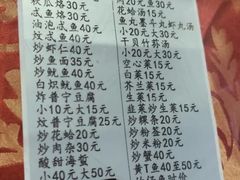 秋瓜烙30元
炸弎鱼40元
油泡弎鱼40元
炆弎鱼40元
炒虾仁40元
炒鱼面35元
炒鱿鱼40元
白炽鱿鱼40元
炸普宁豆腐
小10元大15元
炆普宁豆腐25元
炒花蛤20元
炒肉杂30元
酸甜海蜇
小40元大50元
肉20元鱼30元
花蛤汤15元
鱼丸墨斗丸虾丸汤
小20元大30元
干贝竹荪汤
小20元大30元
空心菜15元
白菜15元
芥兰菜15元
生菜15元
韭菜炒生菜15元
炒粿条20元
炒粉签20元
炒米粉20元
炒蟹40元
黄T鱼40至50元